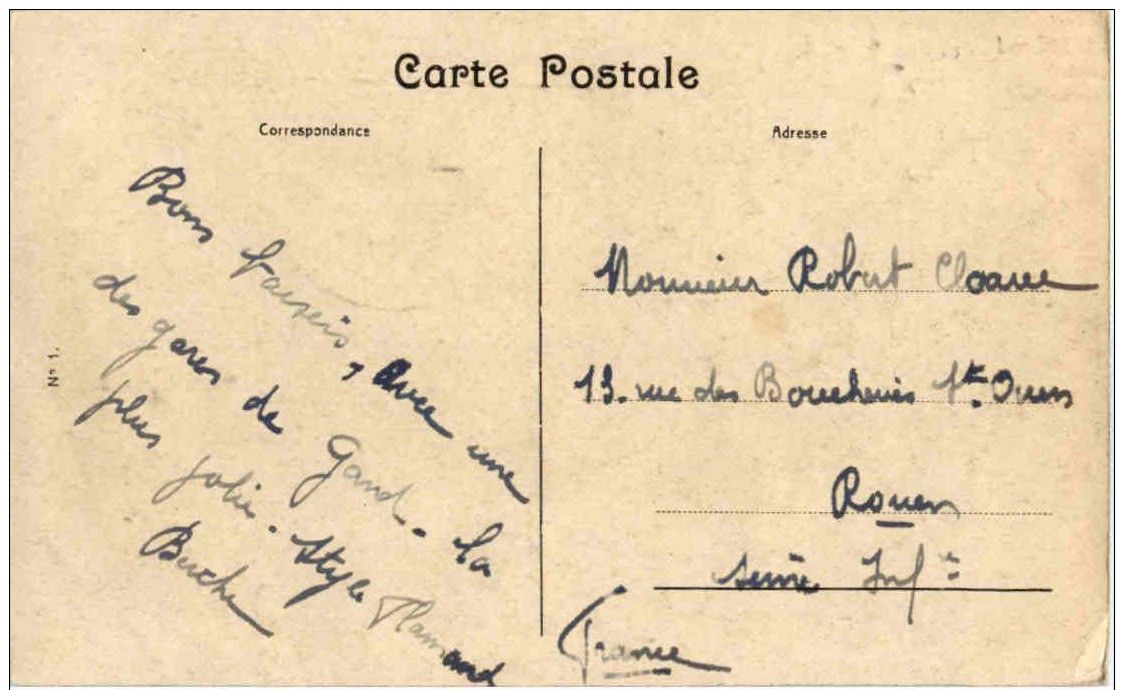 Carte Postale
Correspondance
Bons baisers, avec une
des gares de Gand. La
plus jolie. Style Flamand
Adresse
Monsieur Robert Cloarec
13. rue des Boucheries St. Ouen
Rouen
Seine Infre
France
N° 1.